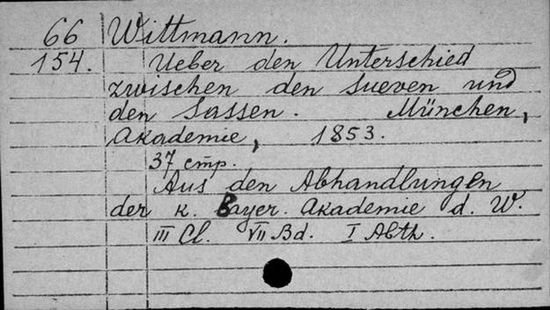 66 Wittmann.
154. Ueber den Unterschied
zwischen den Sueven und
den Sassen. München,
Akademie, 1853.
37 стр.
Aus den Abhandlungen
der k. Bayer. Akademie d. W.
III Cl. VII Bd. I Abth.